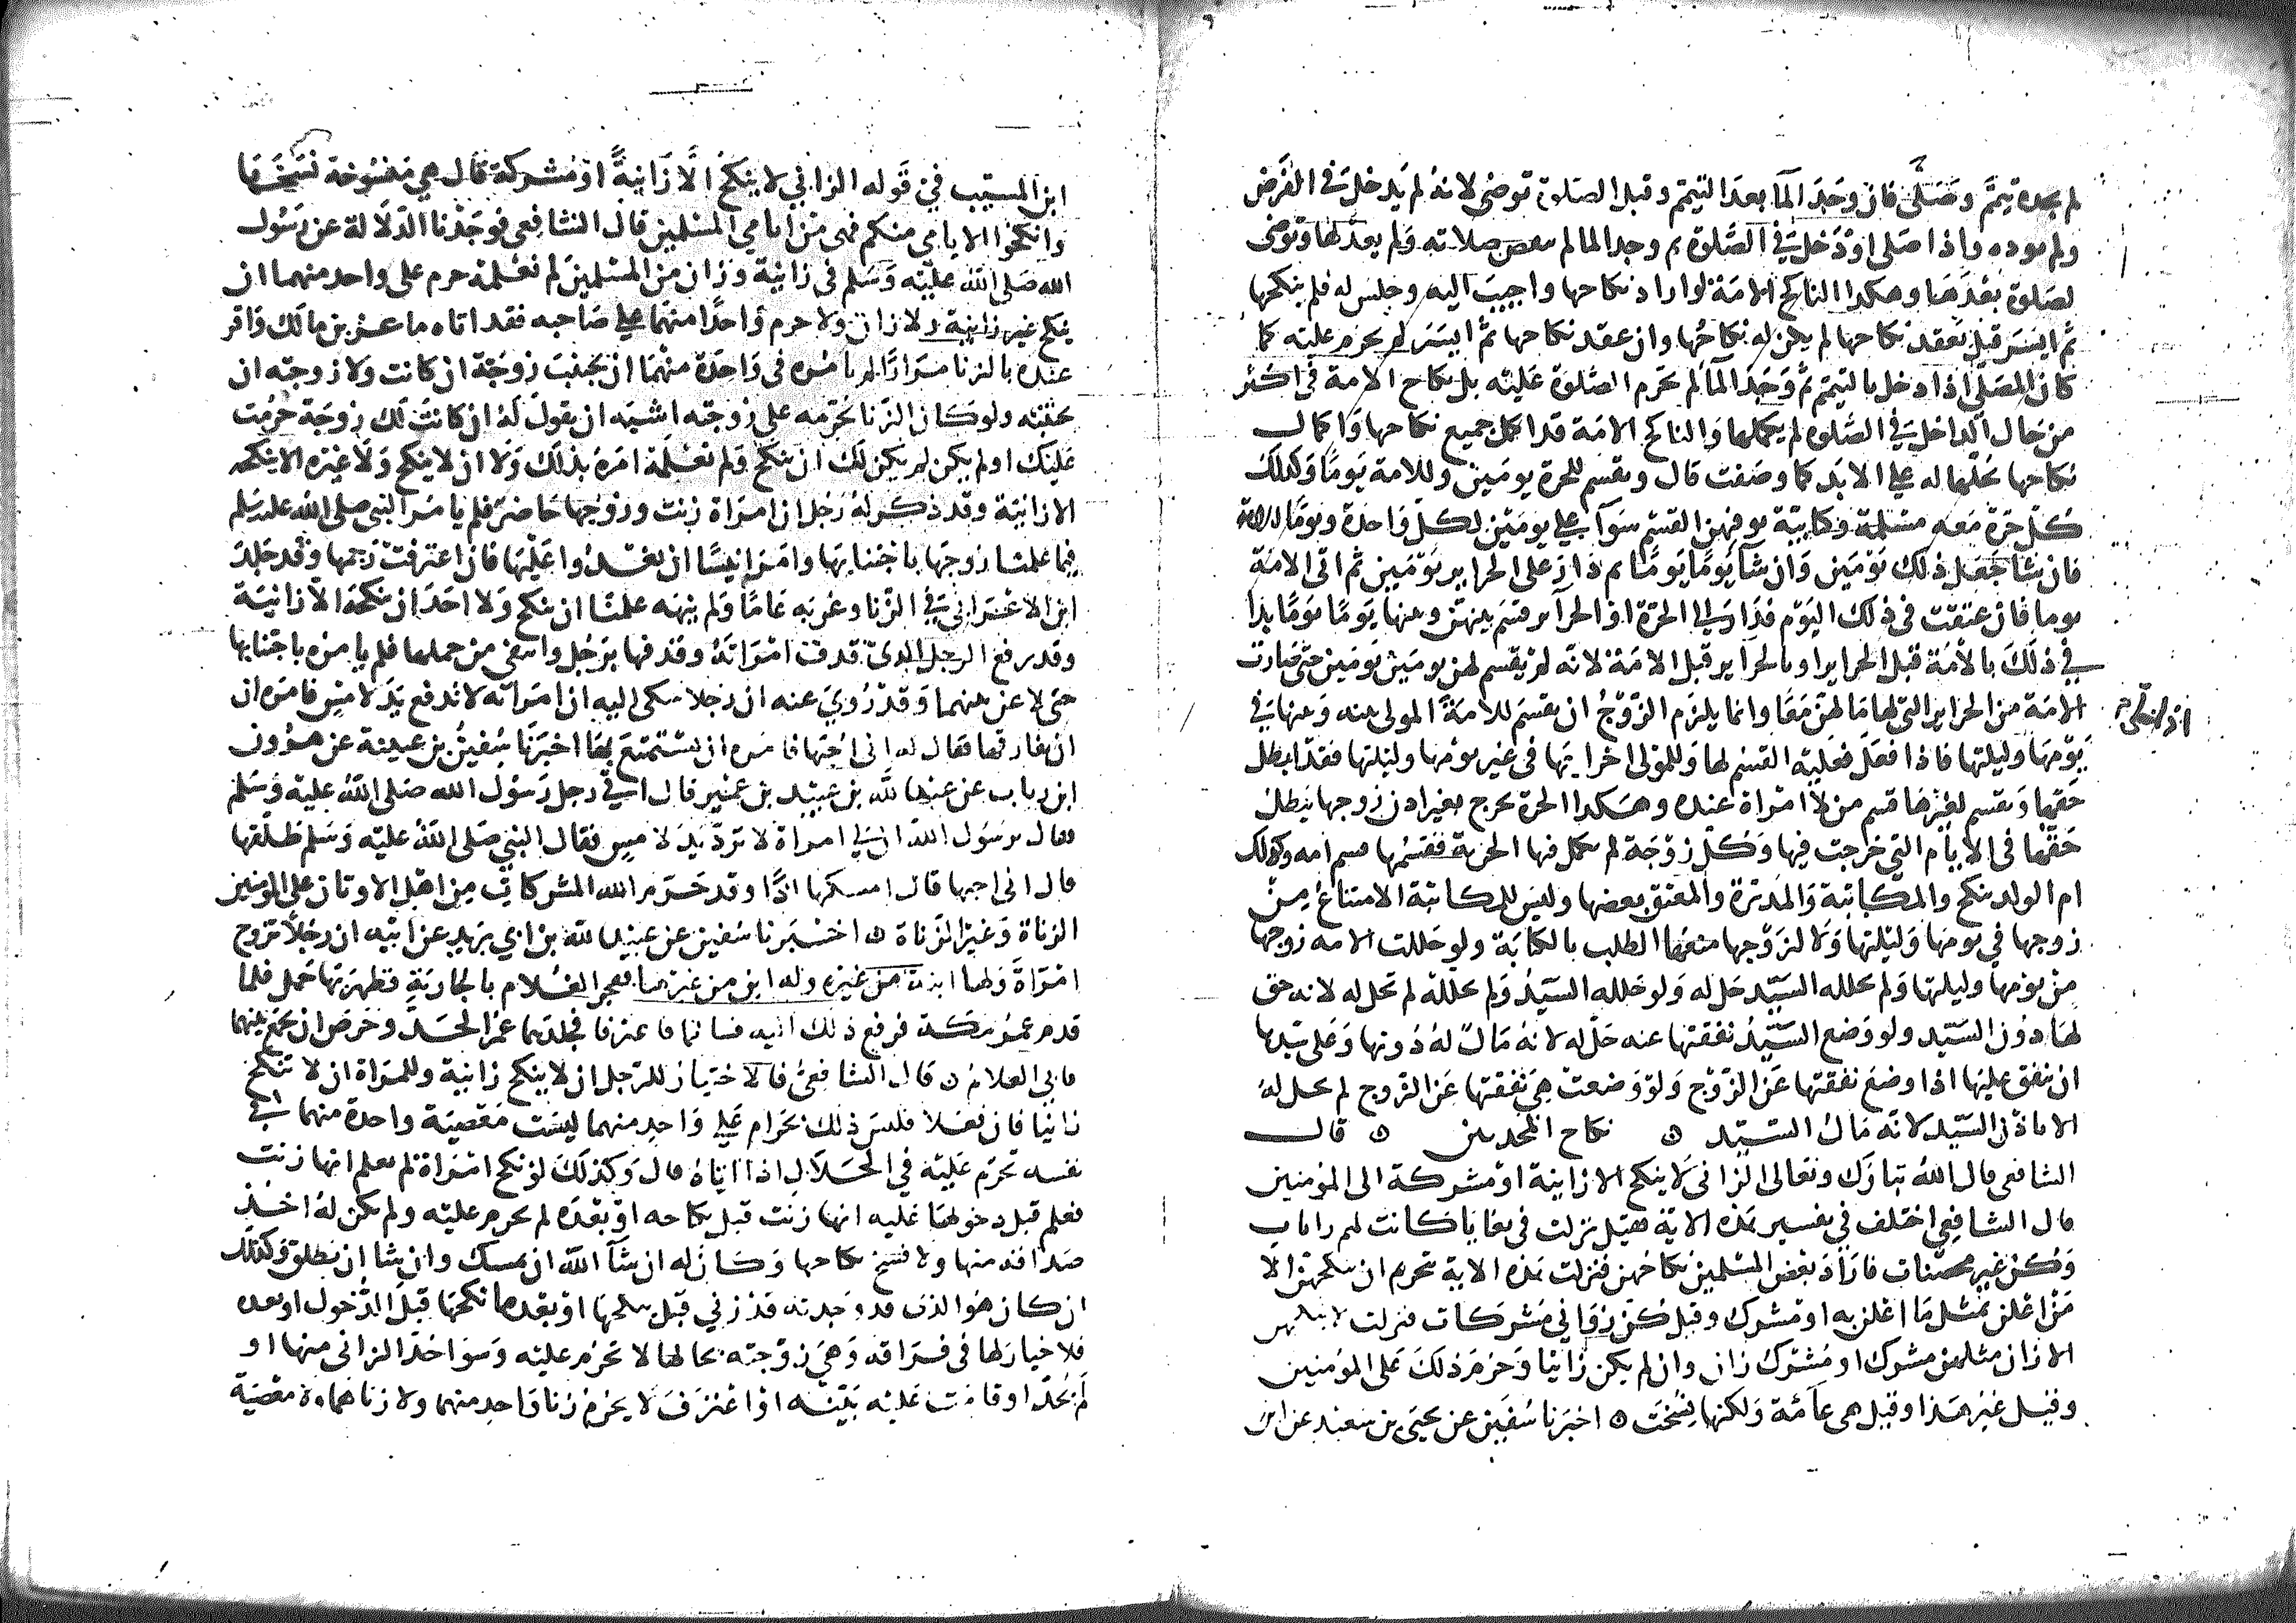 لم يجده تيمم وصلى فان وجد الما بعد التيمم وقبل الصلوة توضى لانه لم يدخل في الفرض
ولم يوده واذا صلى او دخل في الصلوة ثم وجد الما لم ينقض صلاته ولم يعد لها وتوضى
لصلوة بعدها وهكذا الناكح الامة لو اراد نكاحها واجيب اليه وجلس له فلم ينكحها
ثم ايسر قبل يعقد نكاحها لم يكن له نكاحها وان عقد نكاحها ثم ايسر لم يحرم عليه كما
كان المصلي اذا دخل بالتيمم ثم وجد الما لم تحرم الصلوة عليه بل نكاح الامة في اكثر
من حال الداخل في الصلوة لم يكملها والناكح الامة قد اكمل جميع نكاحها واكمال
نكاحها يحلها له على الابد كما وصفت قال ويقسم للحرة يومين وللامة يوما وكذلك
كل حرة معه مسلمة وكتابية يوفيهن القسم سوآ على يومين لكل واحدة ويوما للامة
فان شا جعل ذلك يومين وان شآ يوما يوما ثم دار على الحراير يومين ثم اتى الامة
يوما فان عتقت في ذلك اليوم فدار الى الحرة او الحراير قسم بينهن وبينها يوما يوما بدا
في ذلك بالامة قبل الحراير او بالحراير قبل الامة لانه لم يقسم لهن يومين يومين حتى صارت
الامة من الحراير التي لها ما لهن معا وانما يلزم الزوج ان يقسم للامة المولى عنه وعنها في
يومها وليلتها فاذا فعل فعليه القسم لها وللمولى اخراجها في غير يومها وليلتها فقد ابطل
حقها ويقسم لغيرها قسم من لا امراة عنده وهكذا الحرة تخرج بغير اذن زوجها يبطل
حقها في الايام التي خرجت فيها وكل زوجة لم تكمل فيها الحرية فقسمها قسم امه وكذلك
ام الولد تنكح والمكاتبة والمدبرة والمعتق بعضها وليس للمكاتبة الامتناع من
زوجها في يومها وليلتها ولا لزوجها منعها الطلب بالكتابة ولو حللت الامه زوجها
من يومها وليلتها ولم يحلله السيد حل له ولو حلله السيد ولم تحلله لم تحل له لانه حق
لها دون السيد ولو وضع السيد نفقتها عنه حل له لانه مال له دونها وعلى سيدها
ان ينفق عليها اذا وضع نفقتها عن الزوج ولو وضعت هي نفقتها عن الزوج لم تحل له
الا باذن السيد لانه مال السيد ۝ نكاح المحدثين ۝ قال
الشافعي قال الله تبارك وتعالى الزاني لا ينكح الا زانية او مشركة الى المومنين
قال الشافعي اختلف في تفسير هذه الاية فقيل نزلت في بغايا كانت لهم رايات
وكن غير محصنات فاراد بعض المسلمين نكاحهن فنزلت هذه الاية تحريم ان ينكحهن الا
من اعلن بمثل ما اعلن به او مشرك وقيل كن زواني مشركات فنزلت لا ينكحهن
الا زان مثلهن مشرك او مشرك زان وان لم يكن زانيا وحرم ذلك على المومنين
وقيل غير هذا وقيل هي عامة ولكنها نسخت ۝ اخبرنا سفين عن يحيى بن سعيد عن ابن
ابن المسيب في قوله الزاني لا ينكح الا زانية او مشركة قال هي منسوخة نسختها
وانكحوا الايامى منكم فهي من ايامى المسلمين قال الشافعي فوجدنا الدلالة عن رسول
الله صلى الله عليه وسلم في زانية وزان من المسلمين لم نعلمه حرم على واحد منهما ان
ينكح غير زانية ولا زان ولا حرم واحدا منهما على صاحبه فقد اتاه ماعز بن مالك واقر
عنده بالزنا مرارا لم يامره في واحدة منهما ان يجتنب زوجة ان كانت ولا زوجته ان
تجتنبه ولو كان الزنا يحرمه على زوجته اشبه ان يقول له ان كانت لك زوجة حرمت
عليك او لم يكن لم يكن لك ان تنكح ولم نعلمه امره بذلك ولا ان لا ينكح ولا غيره الا ينكحه
الا زانية وقد ذكر له رجل ان امراة زنت وزوجها حاضر فلم يامر النبي صلى الله عليه وسلم
فيما علمنا زوجها باجتنابها وامر انيسا ان يغدوا عليها فان اعترفت رجمها وقد جلد
ابن الاعرابي في الزنا وغربه عاما ولم ينهه علمنا ان ينكح ولا احد ان ينكحه الا زانية
وقد رفع الرجل الذي قذف امراته وقذفها برجل وانتفى من حملها فلم يامره باجتنابها
حتى لاعن بينهما وقد روي عنه ان رجلا شكى اليه ان امراته لا تدفع يد لامس فامره ان
ان يفارقها فقال له اني احبها فامره ان يستمتع بها اخبرنا سفين بن عيينة عن هرون
ابن رياب عن عبد الله بن عبيد بن عمير قال اتى رجل رسول الله صلى الله عليه وسلم
فقال يرسول الله ان لي امراة لا ترد يد لامس فقال النبي صلى الله عليه وسلم طلقها
قال اني احبها قال امسكها اذا وقد حرم الله المشركات من اهل الاوثان على المومنين
الزناة وغير الزناة ۝ اخبرنا سفين عن عبيد الله بن ابي يزيد عن ابيه ان رجلا تزوج
امراة ولها ابنة من غيره وله ابن من غيرها ففجر الغلام بالجارية فظهر بها حمل فلما
قدم عمر مكة فرفع ذلك اليه فسالهما فاعترفا فجلدهما عمر الحد وحرص ان يجمع بينهما
فابى الغلام ۝ قال الشافعي فالاختيار للرجل ان لا ينكح زانية وللمراة ان لا تنكح
زانيا فان فعلا فليس ذلك بحرام على واحد منهما ليست معصية واحدة منهما في
نفسه تحرم عليه في الحلال اذا اتاه قال وكذلك لو نكح امراة لم يعلم انها زنت
فعلم قبل دخولها عليه انها زنت قبل نكاحه او بعده لم تحرم عليه ولم يكن له اخذ
صداقه منها ولا فسخ نكاحها وكان له ان شآ الله ان يمسك وان شا ان يطلق وكذلك
ان كان هو الذي قد وجدته قد زنى قبل ينكحها او بعدما نكحها قبل الدخول او بعده
فلا خيار لها في فراقه وهي زوجته بحالها لا تحرم عليه وسوا حد الزاني منهما او
لم يحد او قامت عليه بينه او اعترف لا يحرم زنا واحد منهما ولا زناهما ولا معصية